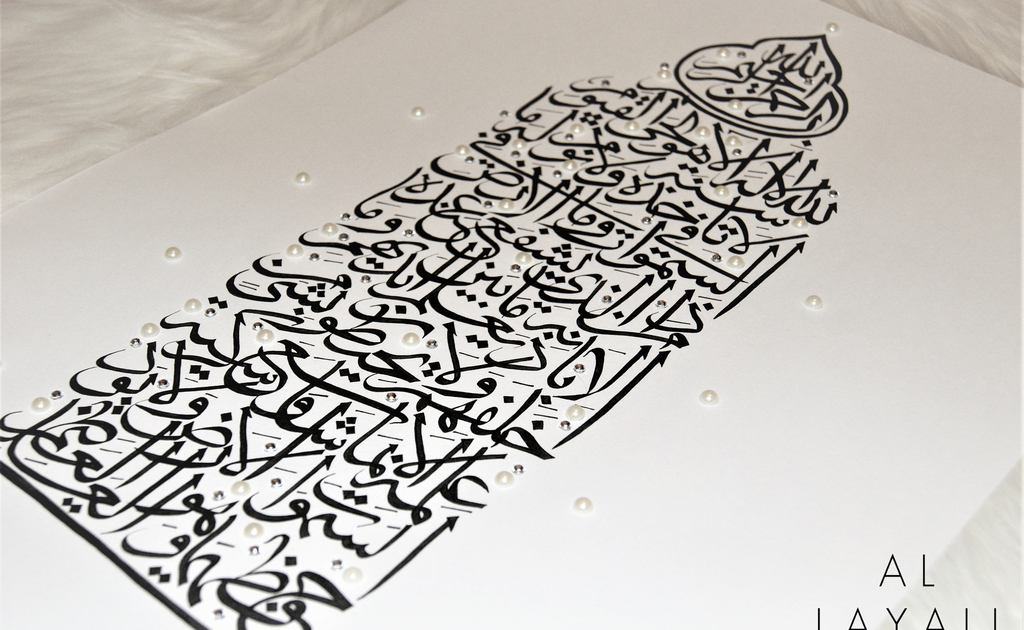 الله لا اله الا هو الحي القيوم
لا تأخذه سنة ولا نوم له ما في
السموت وما في الارض
من ذا الذي يشفع عنده الا
باذنه يعلم ما بين ايديهم وما
خلفهم ولا يحيطون بشيء من
علمه الا بما شاء وسع كرسيه
السموت والارض ولا يؤده
حفظهما وهو العلي العظيم
AL
LAYALI